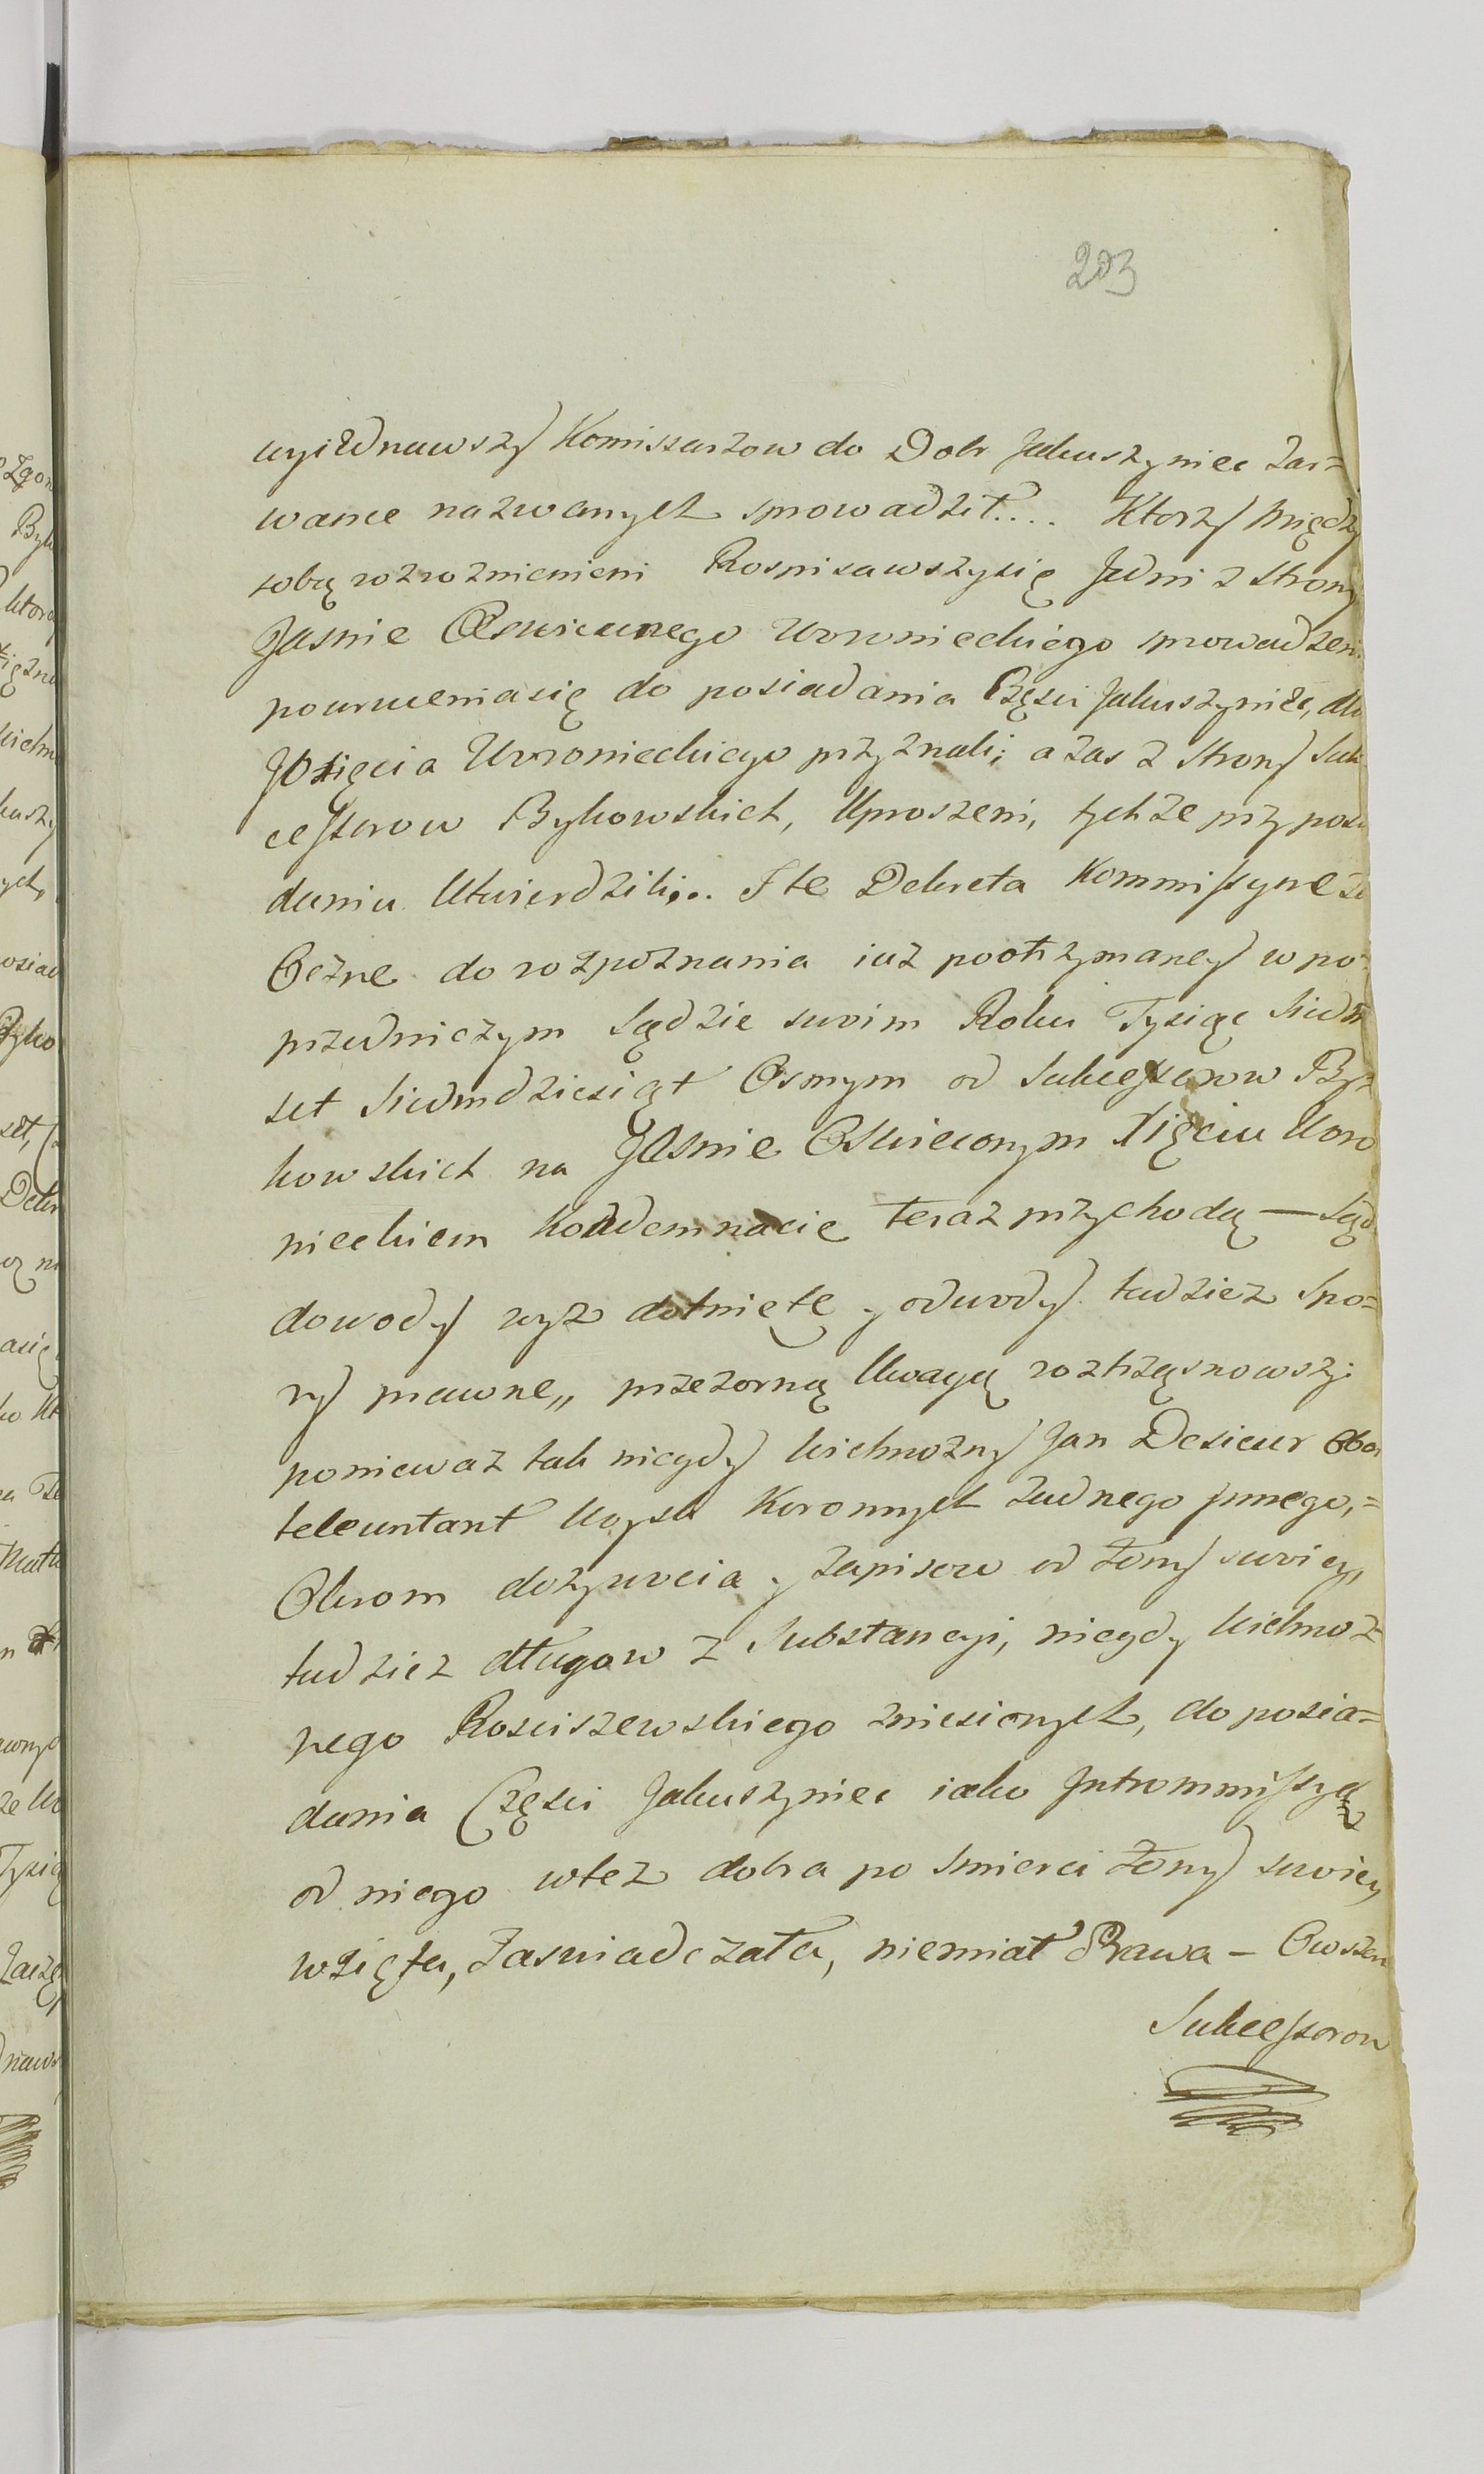 203
wyiednawszy Komissarzow do Dobr Jakuszyniec Zar=
wance nazwanych sprowadził.... Ktorzy między
sobą rozrożnienieni Rospisawszysię Jedni z Strony
Jasnie Oswieconego Woronieckiego sprowadzeni
powruceniasię do posiadania Częsci Jakuszyniec, dla
JOXięcia Woronieckiego przyznali; a zas z Strony Suk
cessorow Bykowskich, Uproszeni, tychże przy posia
daniu Utwierdzili... I te Dekreta Kommissyine
Oczne do rozpoznania iuż pootrzymaney w po=
przedniczym Sądzie swoim Roku Tysiąc Siedm
set Siedmdziesiąt Osmym od Sukcessorow By=
kowskich na JAsnie Oswieconym Xięciu Woro
nieckiem Kondemnacie teraz przychodą — Sąd
dowody wyż dotnięte y odwody tudzież Spo=
ry prawne„ przezorną Uwagą roztrząsnowszy
ponieważ tak niegdy Wielmożny Jan Desieur Obo
teleuntant Woysk Koronnych żadnego jnnego,=
Okrom dożywocia y Zapisow od Żony swoiey,
tudzież długow z Substancyi, niegdy Wielmoż=
nego Rosciszewskiego zniesionych, do posia=
dania Częsci Jakuszyniec iako Jntrommissya
od niego wteż dobra po Smierci Żony swoiey
wzięta, Zaswiadczała, niemiał Prawa – Owszem
Sukcessorow